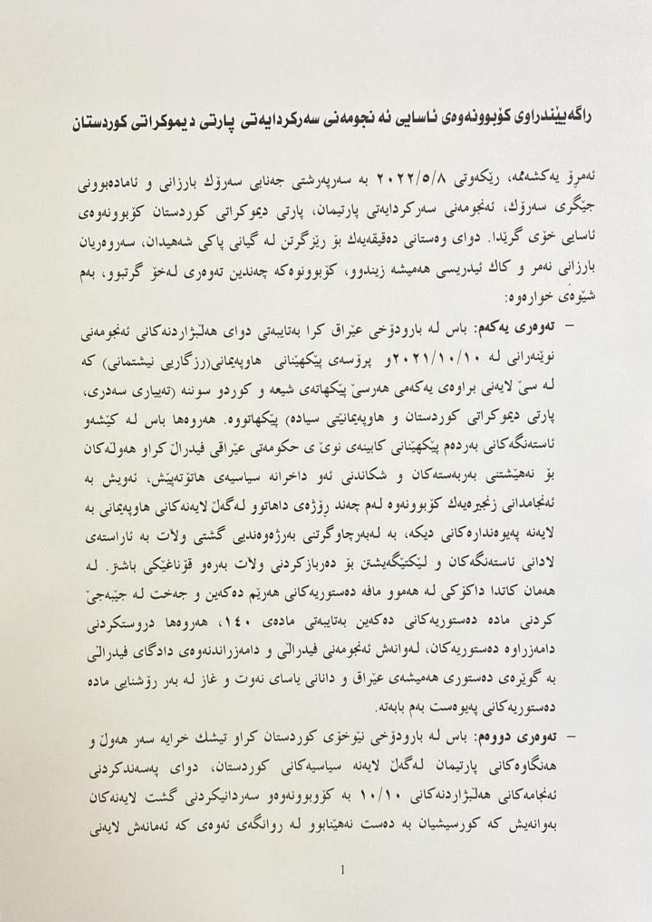 راگەیێندراوی کۆبوونەوەی ئاسایی ئە نجومەنی سەرکردایەتی پارتی دیموکراتی کوردستان
ئەمرۆ یەکشەممە، رێکەوتی ٢٠٢٢/٥/٨ بە سەرپەرشتی جەنابی سەرۆك بارزانی و ئامادەبوونی
جێگری سەرۆك، ئەنجومەنی سەرکردایەتی پارتیمان، پارتی دیموکراتی کوردستان کۆبوونەوەی
ئاسایی خۆی گرێدا. دوای وەستانی دەقیقەیەك بۆ رێزگرتن لە گیانی پاکی شەهیدان، سەروەریان
بارزانی نەمر و کاك ئیدریسی هەمیشە زیندوو، کۆبوونوەکە چەندین تەوەری لەخۆ گرتبوو، بەم
شێوەی خوارەوە:
– تەوەری یەکەم: باس لە بارودۆخی عێراق کرا بەتایبەتی دوای هەڵبژاردنەکانی ئەنجومەنی
نوێنەرانی لە ٢٠٢١/١٠/١٠و پرۆسەی پێکهێنانی هاوپەیمانی(رزگاریی نیشتمانی) کە
لە سێ لایەنی براوەی یەکەمی هەرسێ پێکهاتەی شیعە و کوردو سوننە (تەییاری سەدری،
پارتی دیموکراتی کوردستان و هاوپەیمانێتی سیادە) پێکهاتووە. هەروەها باس لە کێشەو
ئاستەنگەکانی بەردەم پێکهێنانی کابینەی نوێ ی حکومەتی عێراقی فیدراڵ کراو هەوڵەکان
بۆ نەهێشتنی بەربەستەکان و شکاندنی ئەو داخرانە سیاسیەی هاتۆتەپێش، ئەویش بە
ئەنجامدانی زنجیرەیەك کۆبوونەوە لەم چەند رۆژەی داهاتوو لەگەڵ لایەنەکانی هاوپەیمانی بە
لایەنە پەیوەندارەکانی دیکە، بە لەبەرچاوگرتنی بەرژەوەندیی گشتی وڵات بە ئاراستەی
لادانی ئاستەنگەکان و لێکتێگەیشتن بۆ دەربازکردنی وڵات بەرەو قۆناغێکی باشتر. لە
هەمان کاتدا داکۆکی لە هەموو مافە دەستوریەکانی هەرێم دەکەین و جەخت لە جێبەجێ
کردنی مادە دەستوریەکانی دەکەین بەتایبەتی مادەی ١٤٠، هەروەها دروستکردنی
دامەزراوە دەستوریەکان، لەوانەش ئەنجومەنی فیدراڵی و دامەزراندنەوەی دادگای فیدراڵی
بە گوێرەی دەستوری هەمیشەی عێراق و دانانی یاسای نەوت و غاز لە بەر رۆشنایی مادە
دەستوریەکانی پەیوەست بەم بابەتە.
– تەوەری دووەم: باس لە بارودۆخی نێوخۆی کوردستان کراو تیشك خرایە سەر هەوڵ و
هەنگاوەکانی پارتیمان لەگەڵ لایەنە سیاسیەکانی کوردستان، دوای پەسەندکردنی
ئەنجامەکانی هەڵبژاردنەکانی ١٠/١٠ بە کۆوبوونەوەو سەردانیکردنی گشت لایەنەکان
بەوانەیش کە کورسیشیان بە دەست نەهێنابوو لە روانگەی ئەوەی کە ئەمانەش لایەنی
1